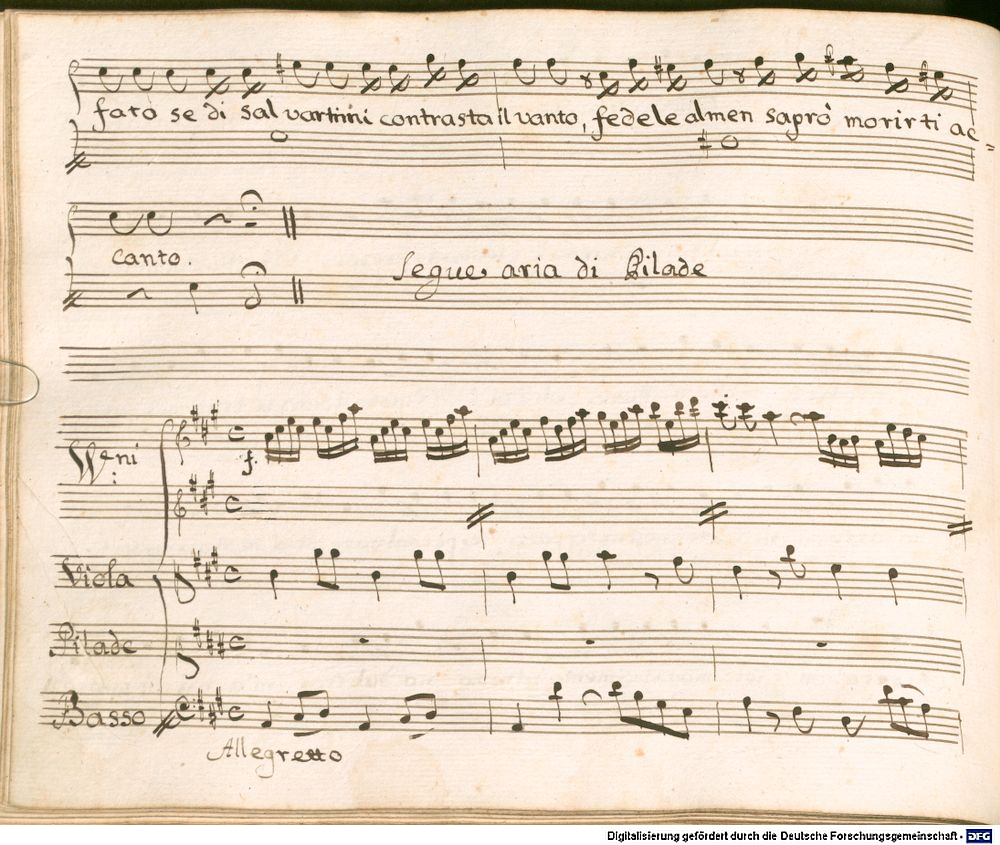 farò se di salvartimi contrasta il vanto, fedele almen saprò morirti ac=
canto.
Segue aria di Pilade
Vⁿⁱ
f.
Viola
Pilade
Basso
Allegretto
Digitalisierung gefördert durch die Deutsche Forschungsgemeinschaft - DFG